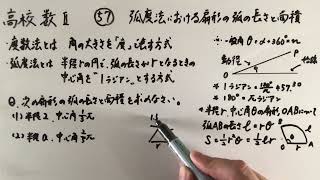 高校数Ⅱ 57 弧度法における扇形の弧の長さと面積
・度数法とは 角の大きさを「度」で表す方式
・弧度法とは 半径rの円で、弧の長さがrとなるときの
中心角を"1ラジアン"とする方式
Q. 次の扇形の弧の長さと面積を求めなさい。
(1) 半径2, 中心角
(2) 半径a, 中心角
一般角 θ=α+360°×n
動径
始線
* 1ラジアン=
* 180°=πラジアン
* 半径r, 中心角θの扇形OABにおいて
弧ABの長さ l=rθ
S=1/2r²θ=1/2lr